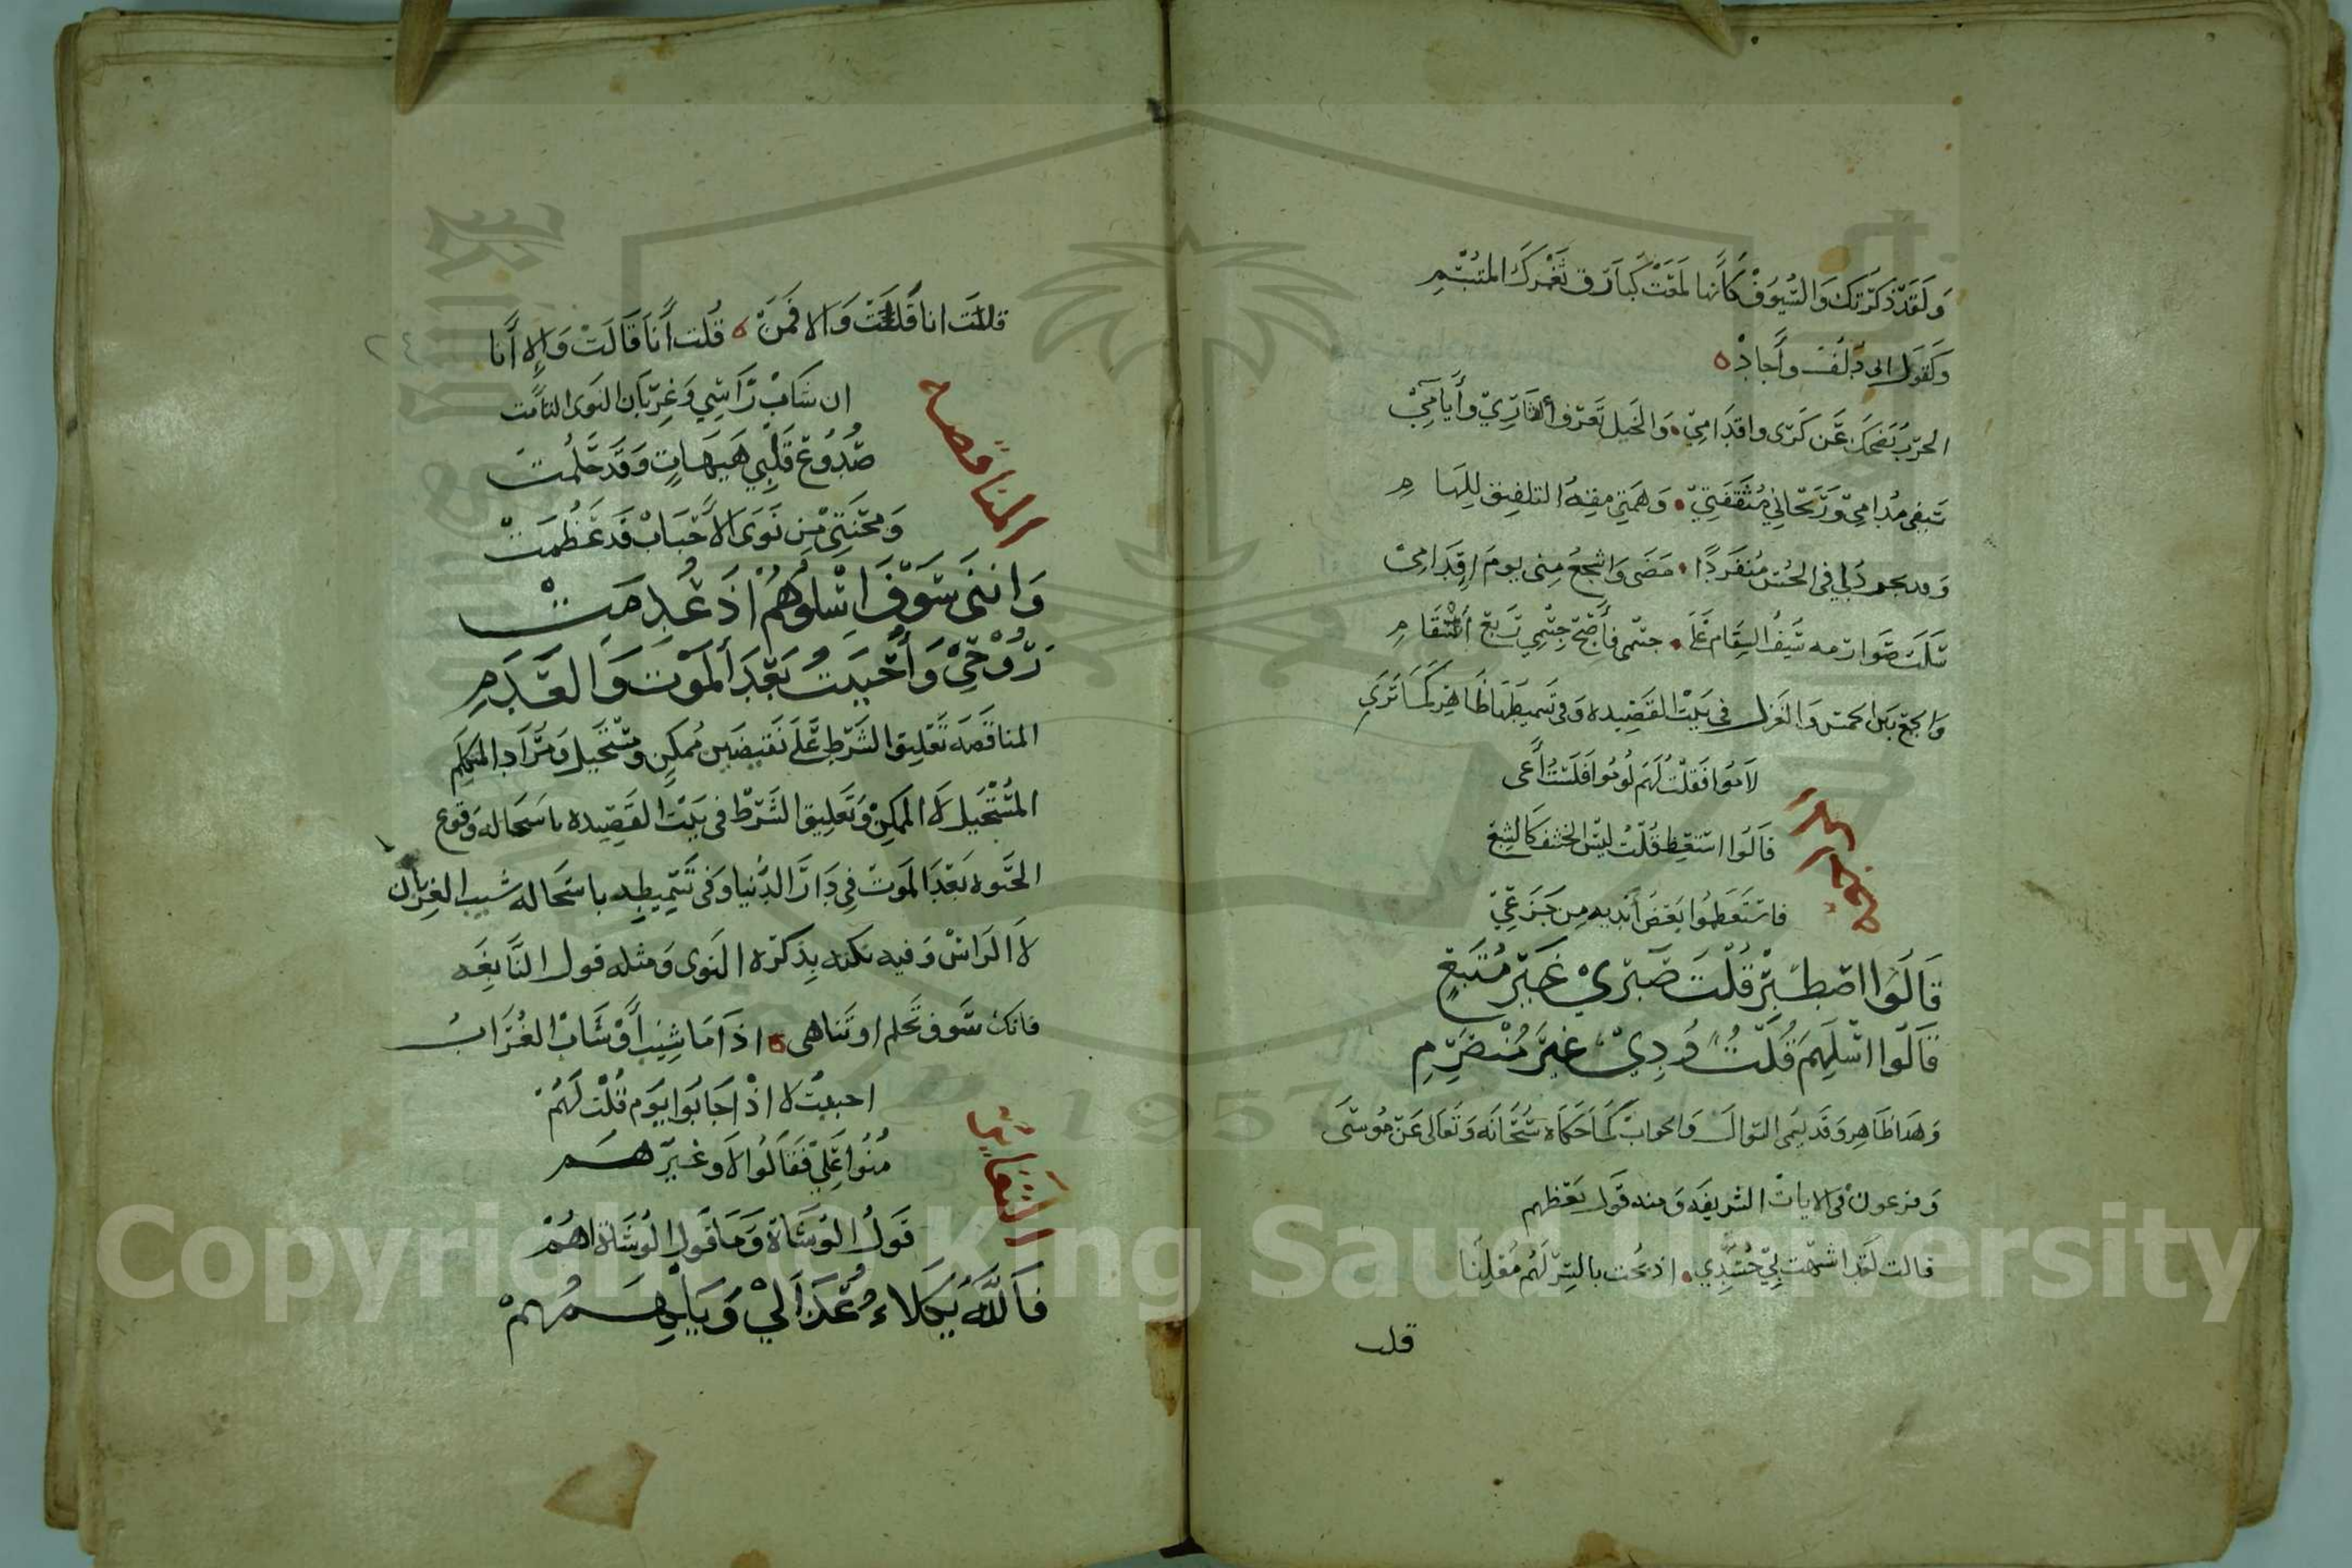 وَلَقَدْ ذَكَرْتك وَالسُّيُوفُ كَأَنها لَمَعَتْ كَبَارق ثَغْرِكِ المُتَبَسِّمِ
وَكَقَولِ ابى دُلَف وأَجادْ ه
الحَرْبُ تَضحَكُ عَن كَرّى واقدَامِيْ • وَالخَيلُ تَعرَف أثارِيْ وأَيامِيْ
سَيفى مُدَامِيْ وَرَيحَانِي مُثَقَّفَتِيْ • وَهمَّتِي التلفِيق لِلهَامِ
وَقد تجرد لِي في الحُسن مُنفَرِدًا • مَضَى وَاشجَعُ مِنى يومَ اِقدَامِيْ
سَلَّت صَوَارمه سَيفُ السِّقَامِ عَلَى • جسمى فأَصبَح جِسْمِي رَبعَ أَسْقَامِ
وَالجَمع بَيْن الحمس وَالغَزل في بَيْت القَصِيده وَفى تسمِيطِهَا ظَاهِرْ كَمَا تَرَي
المراجعه
لاَمُوا فَقلْتُ لَهُم لُومُوا فَلَسْتُ أَعى
قَالُوا اسْتَعِظ قُلْتُ ليْسَ الخشف كَالسَّبُع
قَالُوا اصْطَبِرْ قُلْتُ صَبْرِيْ غَيْرَ مُتَّبَعٍ
قَالُوا اسْلهُمْ قُلْتُ وُدِيْ غيرَ مُنْصَرِمِ
وَهَذَا ظَاهِر وَقَد يسَمى السّوال وَالجوابْ كَمَا حَكَاه سُبْحَانَه وَتَعَالَى عَن مُوسَى
وَفرعونْ فى الايات الشريفَه وَمنه قَول بَعْضِهم
قالت لَقَد اشمَت بِي حُسَّدِي • اذ بُحْت بالسِرّ لَهُم مُعْلِنَا
قلت
٢٤
قلت انا قَالَتْ وَالا فَمَنْ ه قُلت أَنَا قَالَتْ وَاِلا أَنا
المناقضه
ان شَابْ رَاسِي وَغِربَان النوى التأمت
صُدُوع قَلْبِي هَيهَاتِ وَقَد حَلُمت
وَمحْنَتِي مِن نَوَى الاَحْبَابْ قَد عَظُمَتْ
وَاننى سَوْفَ اسْلُوهُمْ اذا عُدِمَتْ
رُوْحِيْ وَأُحْيِيتُ بَعْدَ المَوْت وَالعَدَمِ
المناقَضَه تَعْليق الشَرْط عَلَى نَقيضَين مُمكِن ومُسْتَحِيل وَمُرَاد المتكلم
المُسْتَحِيل لاَ المُمكِنْ وَتَعلِيق الشَرْط في بَيْت القَصِيده باستحاله وَقوع
الحَيَوه بَعْدَ المَوت في دَار الدُنيا وَفى تَسمِيطِه باستحاله شيب الغِربان
لاَ الرَاسْ وَفيه نكته بِذكره النوى وَمثله قول النَّابغَه
فانك سَوف تَحلم او تَناهى ه اذَا مَا شِبْتَ أَوْ شَابْ الغُرَابُ
التغاير
احببت لا اذْ اَجَابُوا يَوم قُلْت لَهُمْ
مُنُوا عَلَيْ فَقَالُوا لاَ وغيرهم
قَوْلُ الوُشَاة وَمَا قَول الوُشَاة اهُمْ
فَاَللهُ يَكلاءُ عُذَّالِيْ وَيُلْهِمُهُمْ
Copyright © King Saud University
1957